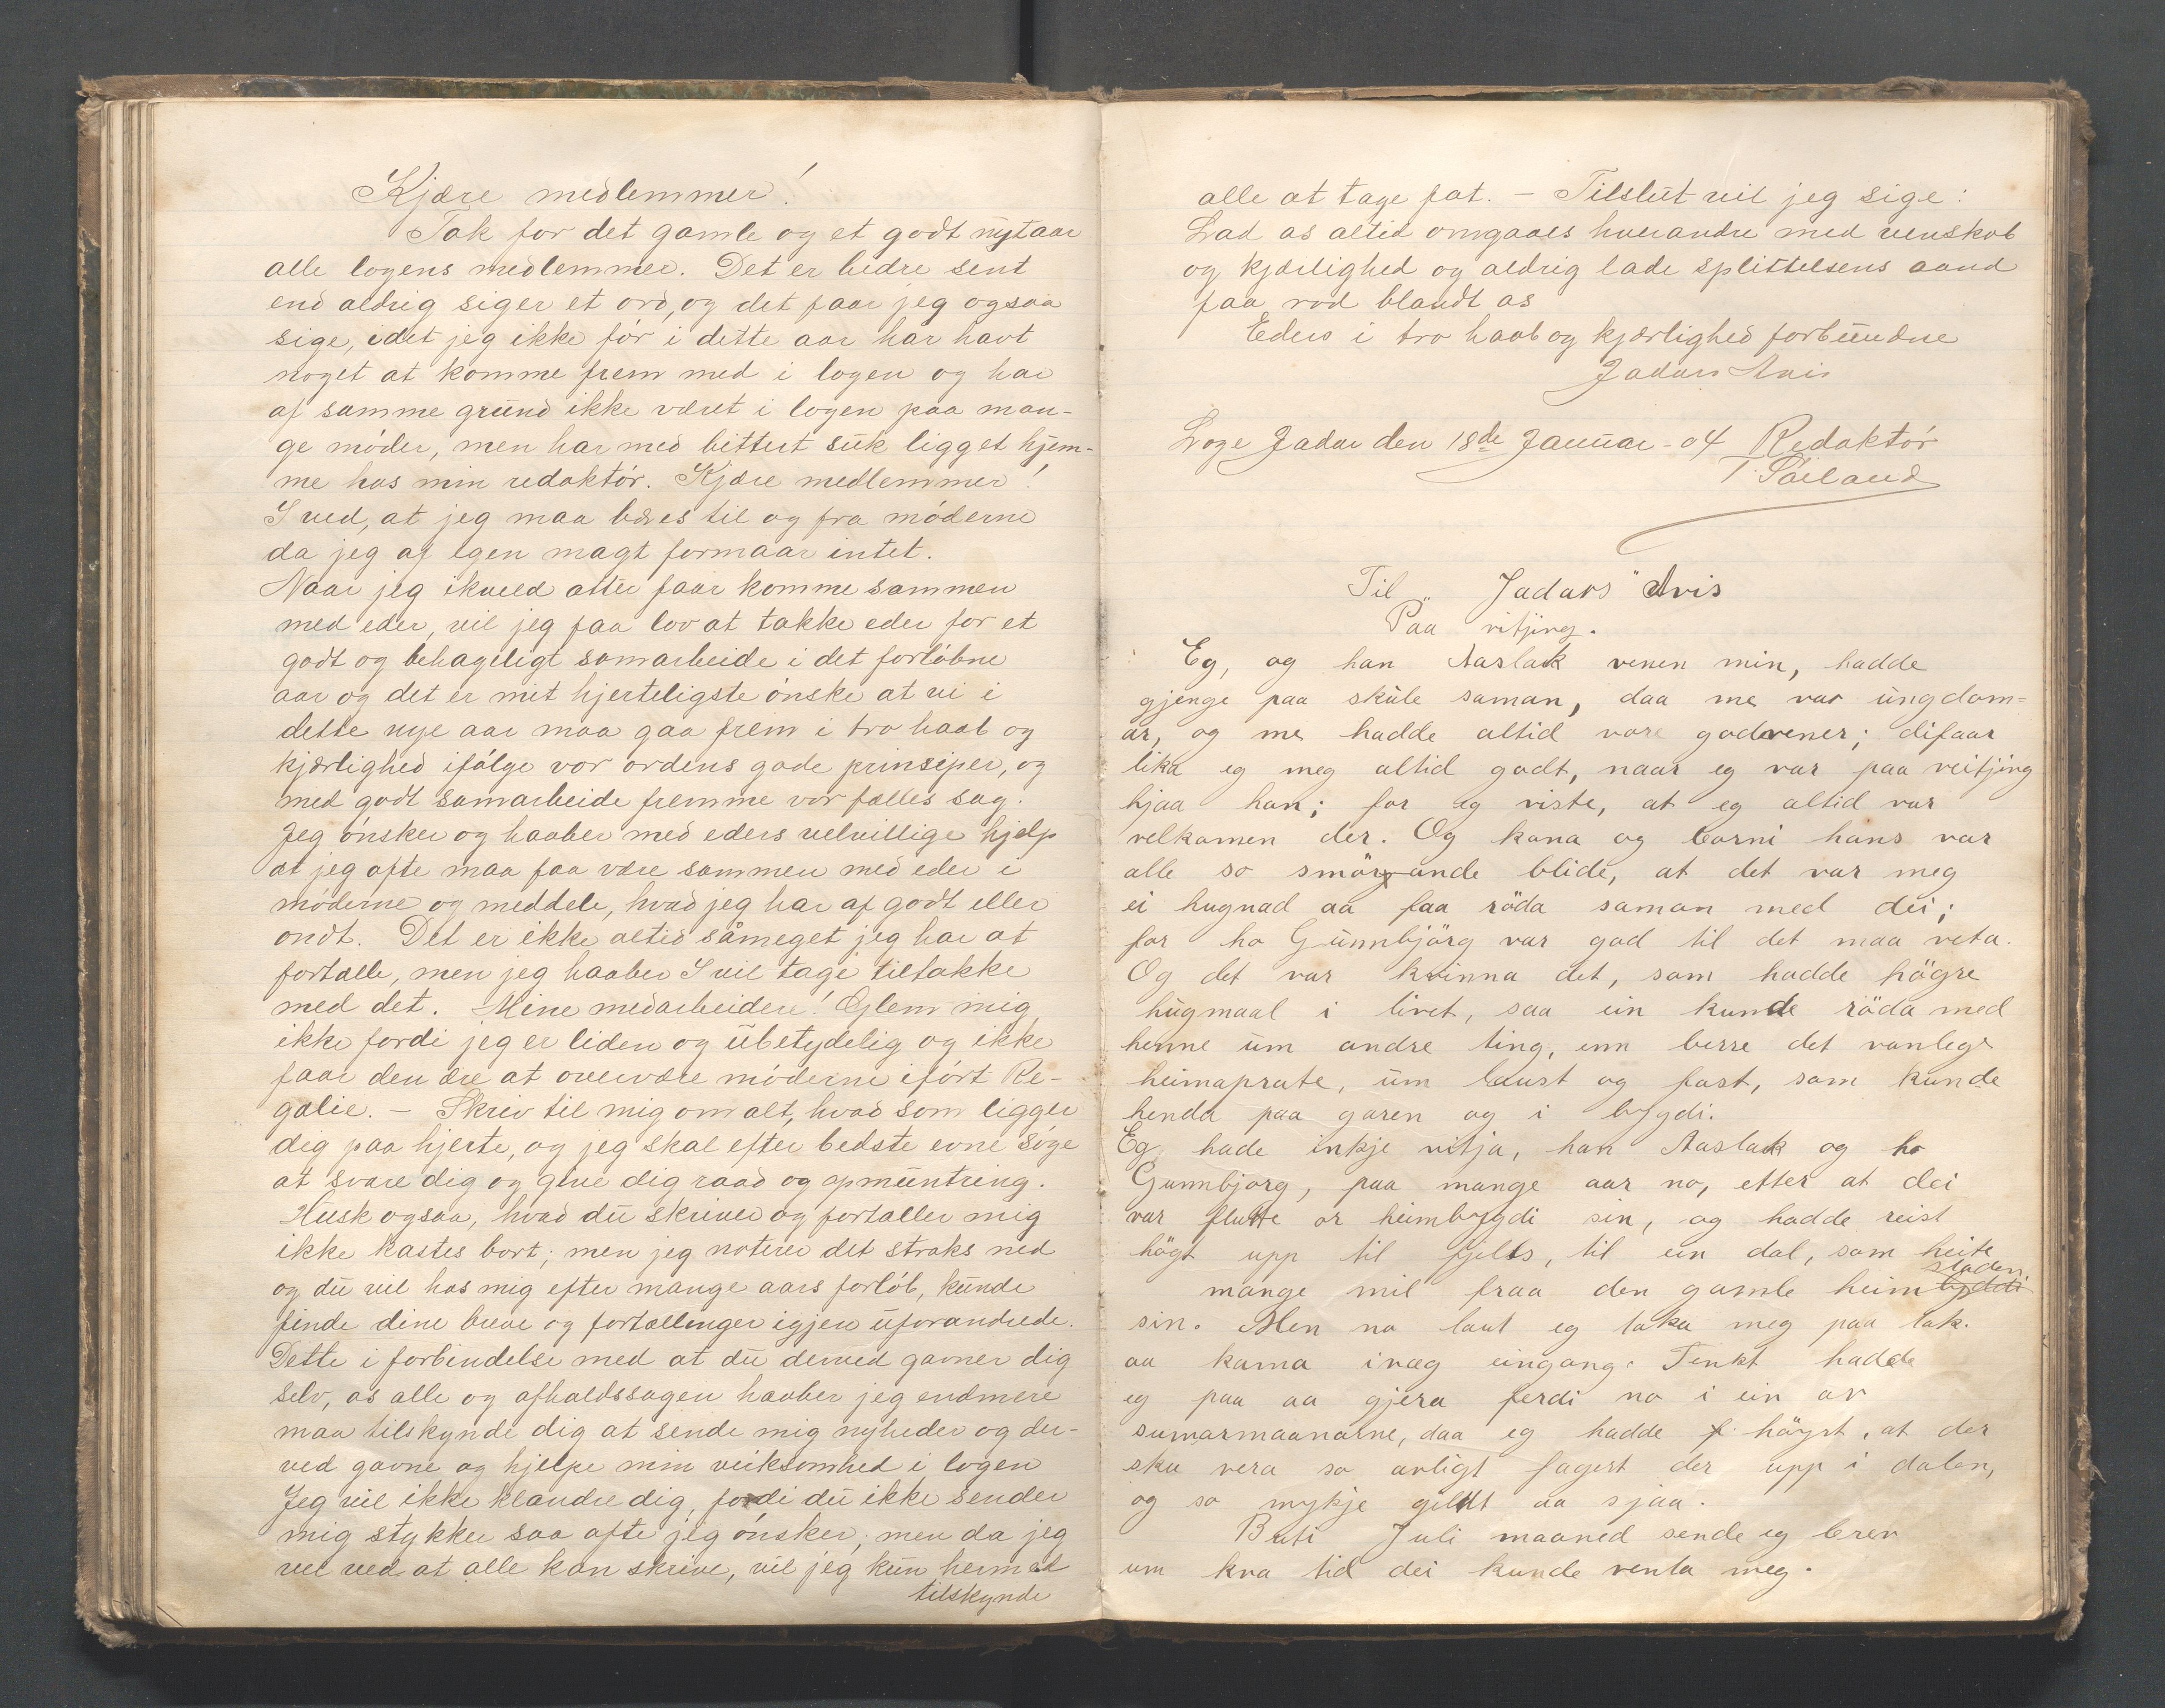 Kjære medlemmer!
Tak for det gamle og et godt nytaar
alle logens medlemmer. Det er bedre sent
end aldrig siger et ord, og det faar jeg ogsaa
sige, idet jeg ikke før i dette aar har havt
noget at komme frem med i logen og har
af samme grund ikke været i logen paa man-
ge møder, men har med bittert suk ligget hjem-
me hos min redaktør. Kjære medlemmer!
I ved, at jeg maa bæres til og fra møderne
da jeg af egen magt formaar intet.
Naar jeg ikveld atter faar komme sammen
med eder, vil jeg faa lov at takke eder for et
godt og behageligt samarbeide i det forløbne
aar og det er mit hjerteligste ønske at vi i
dette nye aar maa gaa frem i tro haab og
kjærlighed ifølge vor ordens gode prinsiper, og
med godt samarbeide fremme vor fælles sag.
Jeg ønsker og haaber med eders velvillige hjælp
at jeg ofte maa faa være sammen med eder i
møderne og meddele, hvad jeg har af godt eller
ondt. Det er ikke altid såmeget jeg har at
fortælle, men jeg haaber I vil tage tiltakke
med det. Mine medarbeidere! Glem mig
ikke fordi jeg er liden og ubetydelig og ikke
faar den ære at overvære møderne iført Re-
galie. – Skriv til mig om alt, hvad som ligger
dig paa hjerte, og jeg skal efter bedste evne søge
at svare dig og give dig raad og opmuntring.
Husk ogsaa, hvad du skriver og fortæller mig
ikke kastes bort; men jeg noterer det straks ned
og du vil hos mig efter mange aars forløb, kunde
finde dine breve og fortællinger igjen uforandrede.
Dette i forbindelse med at du derved gavner dig
selv, os alle og afholdssagen haaber jeg endmere
maa tilskynde dig at sende mig nyheder og der-
ved gavne og hjelpe min virksomhed i logen
Jeg vil ikke klandre dig, fordi du ikke sender
mig stykker saa ofte jeg ønsker, men da jeg
vel ved at alle kan skrive, vil jeg kun hermed
tilskynde
alle at tage fat. – Tilslut vil jeg sige:
Lad os altid omgaaes hverandre med venskab
og kjærlighed og aldrig lade splittelsens aand
faa rod blandt os
Eders i tro haab og kjærlighed forbundne
Jadars Avis
Loge Jadar den 18de Januar - 04 Redaktør
T.
Til „Jadars" Avis
Paa vitjing.
Eg, og han Aaslak venen min, hadde
gjenge paa skule saman, daa me var ungdom=
ar, og me hadde altid vore godvener; difaar
lika eg meg altid godt, naar eg var paa veitjing
hjaa han; for eg viste, at eg altid var
velkomen der. Og kona og borni hans var
alle so smørjande blide, at det var meg
ei hugnad aa faa röda saman med dei;
for ho Gunnbjörg var god til det maa veta.
Og det var kvinna det, som hadde högre
hugmaal i livet, saa ein kunde röda med
henne um andre ting, enn berre det vanlege
heimaprate, um laust og fast, som kunde
henda paa garen og i bygdi.
Eg hade inkje vitja, han Aaslak og ho
Gunnbjorg, paa mange aar no, etter at dei
var flutte or heimbygdi sin, og hadde reist
högt upp til fjells, til ein dal, som heite
mange mil fraa den gamle heimbygdi staden
sin. Men no laut eg taka meg paa tak.
aa koma ivæg eingang. Tenkt hadde
eg paa aa gjera ferdi no i ein av
sumarmaanarne, daa eg hadde f. höyrt, at der
sku vera so ovligt fagert der upp i dalen,
og so mykje gildt aa sjaa.
Buti Juli maaned sende eg brev
um kva tid dei kunde venta meg.